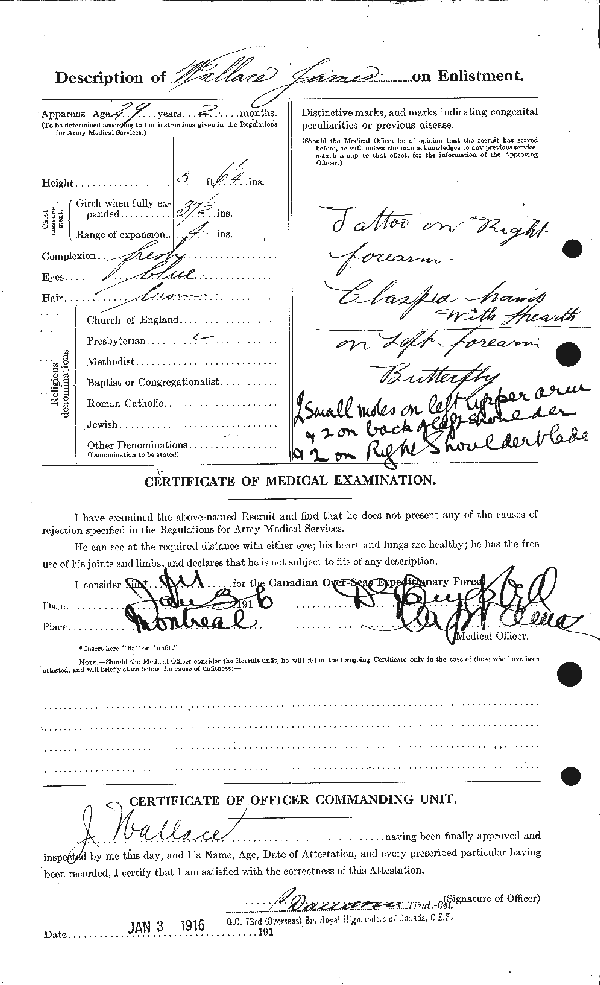 Description of Wallace James on Enlistment.
Apparent Age 29 years 2 months.
(To be determined according to the instructions given in the Regulations for Army Medical Services.)
Height 5 ft. 6½ ins.
Chest measurement.
Girth when fully expanded 37½ ins.
Range of expansion 4 ins.
Complexion fresh
Eyes blue
Hair brown
Religious denominations
Church of England
Presbyterian
Methodist
Baptist or Congregationalist
Roman Catholic
Jewish
Other Denominations
(Denomination to be stated)
Distinctive marks, and marks indicating congenital
peculiarities or previous disease.
(Should the Medical Officer be of opinion that the recruit has served
before, he will, unless the man acknowledges to any previous service,
attach a slip to that effect, for the information of the Approving
Officer.)
Tattoo on Right
forearm.
Clasped hands
With Hearth
on Left forearm
Butterfly
2 Small moles on left upper arm
& 2 on back of left shoulder
& 2 on Right Shoulder blade
CERTIFICATE OF MEDICAL EXAMINATION.
I have examined the above-named Recruit and find that he does not present any of the causes of
rejection specified in the Regulations for Army Medical Services.
He can see at the required distance with either eye; his heart and lungs are healthy; he has the free
use of his joints and limbs, and declares that he is not subject to fits of any description.
I consider him fit for the Canadian Over-Seas Expeditionary Force.
Date Jan 3 1916
Place Montreal
Medical Officer.
* Insert here "fit" or "unfit."
Note.—Should the Medical Officer consider the Recruit unfit, he will fill in the foregoing Certificate only in the case of those who have been
attested, and will briefly state below the cause of unfitness:—
CERTIFICATE OF OFFICER COMMANDING UNIT.
J Wallace having been finally approved and
inspected by me this day, and his Name, Age, Date of Attestation, and every prescribed particular having
been recorded, I certify that I am satisfied with the correctness of this Attestation.
(Signature of Officer)
Lieut-Col.
O.C. 73rd (Overseas) Bn. Royal Highlanders of Canada, C.E.F.
Date JAN 3 1916 191